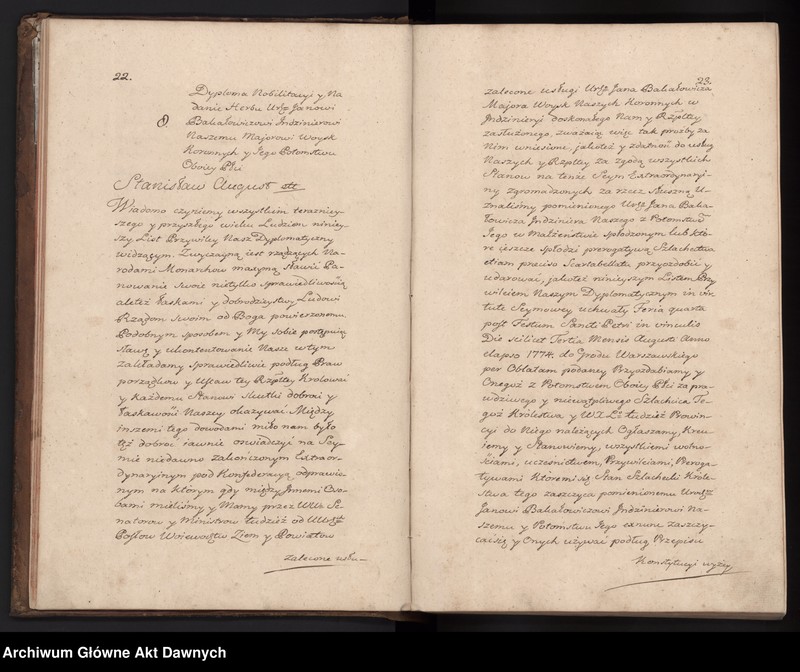 22.
Dyploma Nobilitacyi y Na
danie Herbu Urŏ Janowi
Bakałowiczowi Indzinierowi
Naszemu Majorowi Woysk
Koronnych y Jego Potomstwu
Oboiey Płci
Stanisław August etc
Wiadomo czyniemy wszystkim terazniey-
szego y przyszłego wieku Ludziom niniey-
szy List Przywiley Nasz Dyplomatyczny
widzącym. Zwyczayną iest rządzących Na-
rodami Monarchow maxymą Sławić Pa-
nowanie Swoie nietylko sprawiedliwością
aleteż Łaskami y dobrodzieystwy Ludowi
Rządom Swoim od Boga powierzonemu
Podobnym sposobem y My sobie postępuiąc
Sławę y ukontentowanie Nasze w tym
zakładamy sprawiedliwie podług Praw
porządkow y Ustaw tey Rzpltey Krolować
y każdemu Stanowi Skutki dobroci y
Łaskawości Naszey okazywać. Między
inszemi tego dowodami miło nam było
tęż dobroć iawnie oswiadczyć na Sey-
mie niedawno zakonczonym Extraor-
dynaryinym pod Konfederacyą odprawio-
nym na którym gdy między Innemi Oso-
bami mieliśmy y Mamy przez WWch Se-
natorow y Ministrow tudzież od
Posłow Woiewodztw Ziem y Powiatow
zalecone usłu-
23.
zalecone usługi Jana Bakałowicza
Majora Woysk Naszych Koronnych w
Indzinieryi doskonałego Nam y Rzpltey
zasłużonego, zważaiąc więc tak prozby za
Nim wniesione, iakoteż y zdatność do usług
Naszych y Rzpltey za zgodą wszystkich
Stanow na tenże Seym Extraordynaryi-
ny zgromadzonych za rzecz słuszną U-
znaliśmy pomienionego Jana Baka-
łowicza Indziniera Naszego z Potomstwem
Jego w Małżeństwie spłodzonym lub któ-
re ieszcze spłodzi prerogatywą Szlachectwa
etiam praciso Scartabellatu przyozdobić y
udarować, iakoteż ninieyszym Listem Przy
wileiem Naszym Dyplomatycznym in vir-
tute Seymowey uchwały Feria quarta
post Festum Sancti Petri in vinculis
Die scilicet Tertia Mensis Augusti Anno
elapso 1774. do Grodu Warszawskiego
per Oblatam podaney Przyozdabiamy y
Onegoż z Potomstwem Oboiey Płci za pra-
wdziwego y niewątpliwego Szlachcica Te-
goż Królestwa y W.X.L: tudzież Prowin-
cyi do Niego należących Ogłaszamy, Kreu-
iemy y Stanowiemy, wszystkiemi wolno-
ściami, uczęśnictwem, Przywileiami, Preroga-
tywami ktoremi się Stan Szlachecki Króle-
stwa tego zaszczyca pomienionemu
Janowi Bakałowiczowi Indzinierowi Na-
szemu y Potomstwu Jego exnunc zaszczy-
caiąc y Onych używać podług Przepisu
Konstytucyi wyżey
Archiwum Główne Akt Dawnych